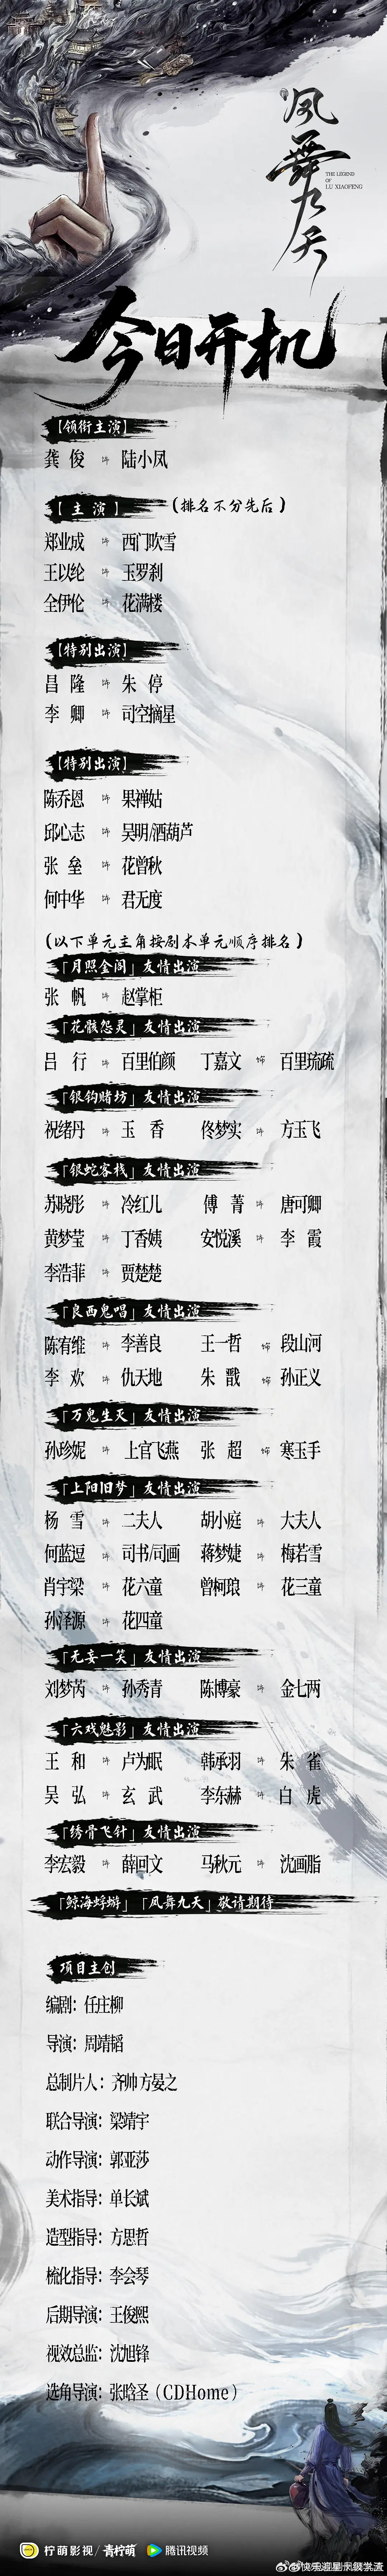 凤舞九天
THE LEGEND
OF
LU XIAOFENG
今日开机
【领衔主演】
龚 俊 饰 陆小凤
【主演】(排名不分先后)
郑业成 饰 西门吹雪
王以纶 饰 玉罗刹
全伊伦 饰 花满楼
【特别出演】
昌 隆 饰 朱 停
李 卿 饰 司空摘星
【特别出演】
陈乔恩 饰 果禅姑
邱心志 饰 吴明/洒葫芦
张 垒 饰 花曾秋
何中华 饰 君无度
(以下单元主角按剧本单元顺序排名)
「月照金阁」友情出演
张 帆 饰 赵掌柜
「花骸怨灵」友情出演
吕 行 饰 百里伯颜 丁嘉文 饰 百里琉疏
「银钩赌坊」友情出演
祝绪丹 饰 玉 香 佟梦实 饰 方玉飞
「银蛇客栈」友情出演
苏晓彤 饰 冷红儿 傅 菁 饰 唐可卿
黄梦莹 饰 丁香姨 安悦溪 饰 李 霞
李浩菲 饰 贾楚楚
「良西鬼唱」友情出演
陈宥维 饰 李善良 王一哲 饰 段山河
李 欢 饰 仇天地 朱 戬 饰 孙正义
「万鬼生天」友情出演
孙珍妮 饰 上官飞燕 张 超 饰 寒玉手
「上阳旧梦」友情出演
杨 雪 饰 二夫人 胡小庭 饰 大夫人
何蓝逗 饰 司书/司画 蒋梦婕 饰 梅若雪
肖宇梁 饰 花六童 曾柯琅 饰 花三童
孙泽源 饰 花四童
「无妄一笑」友情出演
刘梦芮 饰 孙秀青 陈博豪 饰 金七两
「六戏魅影」友情出演
王 和 饰 卢为眠 韩承羽 饰 朱 雀
吴 弘 饰 玄 武 李东赫 饰 白 虎
「绣骨飞针」友情出演
李宏毅 饰 薛可文 马秋元 饰 沈画脂
「鲸海蜉蝣」「凤舞九天」敬请期待
项目主创
编剧：任庄柳
导演：周靖韬
总制片人：齐帅 方晏之
联合导演：梁靖宇
动作导演：郭亚莎
美术指导：单长斌
造型指导：方思哲
梳化指导：李会琴
后期导演：王俊熙
视效总监：沈旭锋
选角导演：张晗圣（CDHome）
柠萌影视/青柠萌 腾讯视频